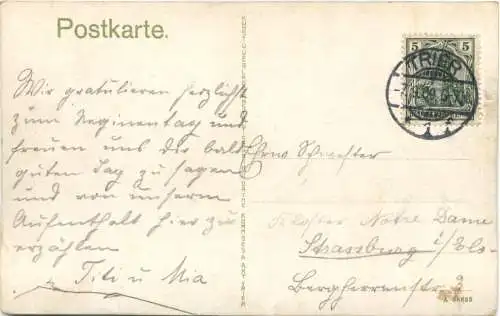 Postkarte.
Wir gratulieren herzlichst
zum Reginentag und
freuen uns dir bald
guten Tag zu sagen
und von unserm
Aufenthalt hier zu
erzählen
Titi u Mia
5 5
TRIER
Ehrw Schwester
Kloster Notre Dame
Strassburg i/Els-
Bergherrenstr 2